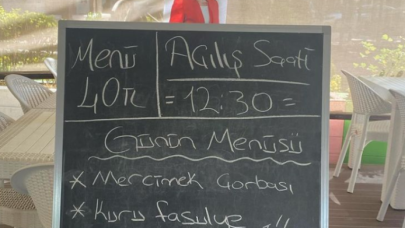 Menü
40 TL
Açılış Saati
= 12:30 =
Günün Menüsü
* Mercimek Çorbası
* Kuru fasulye